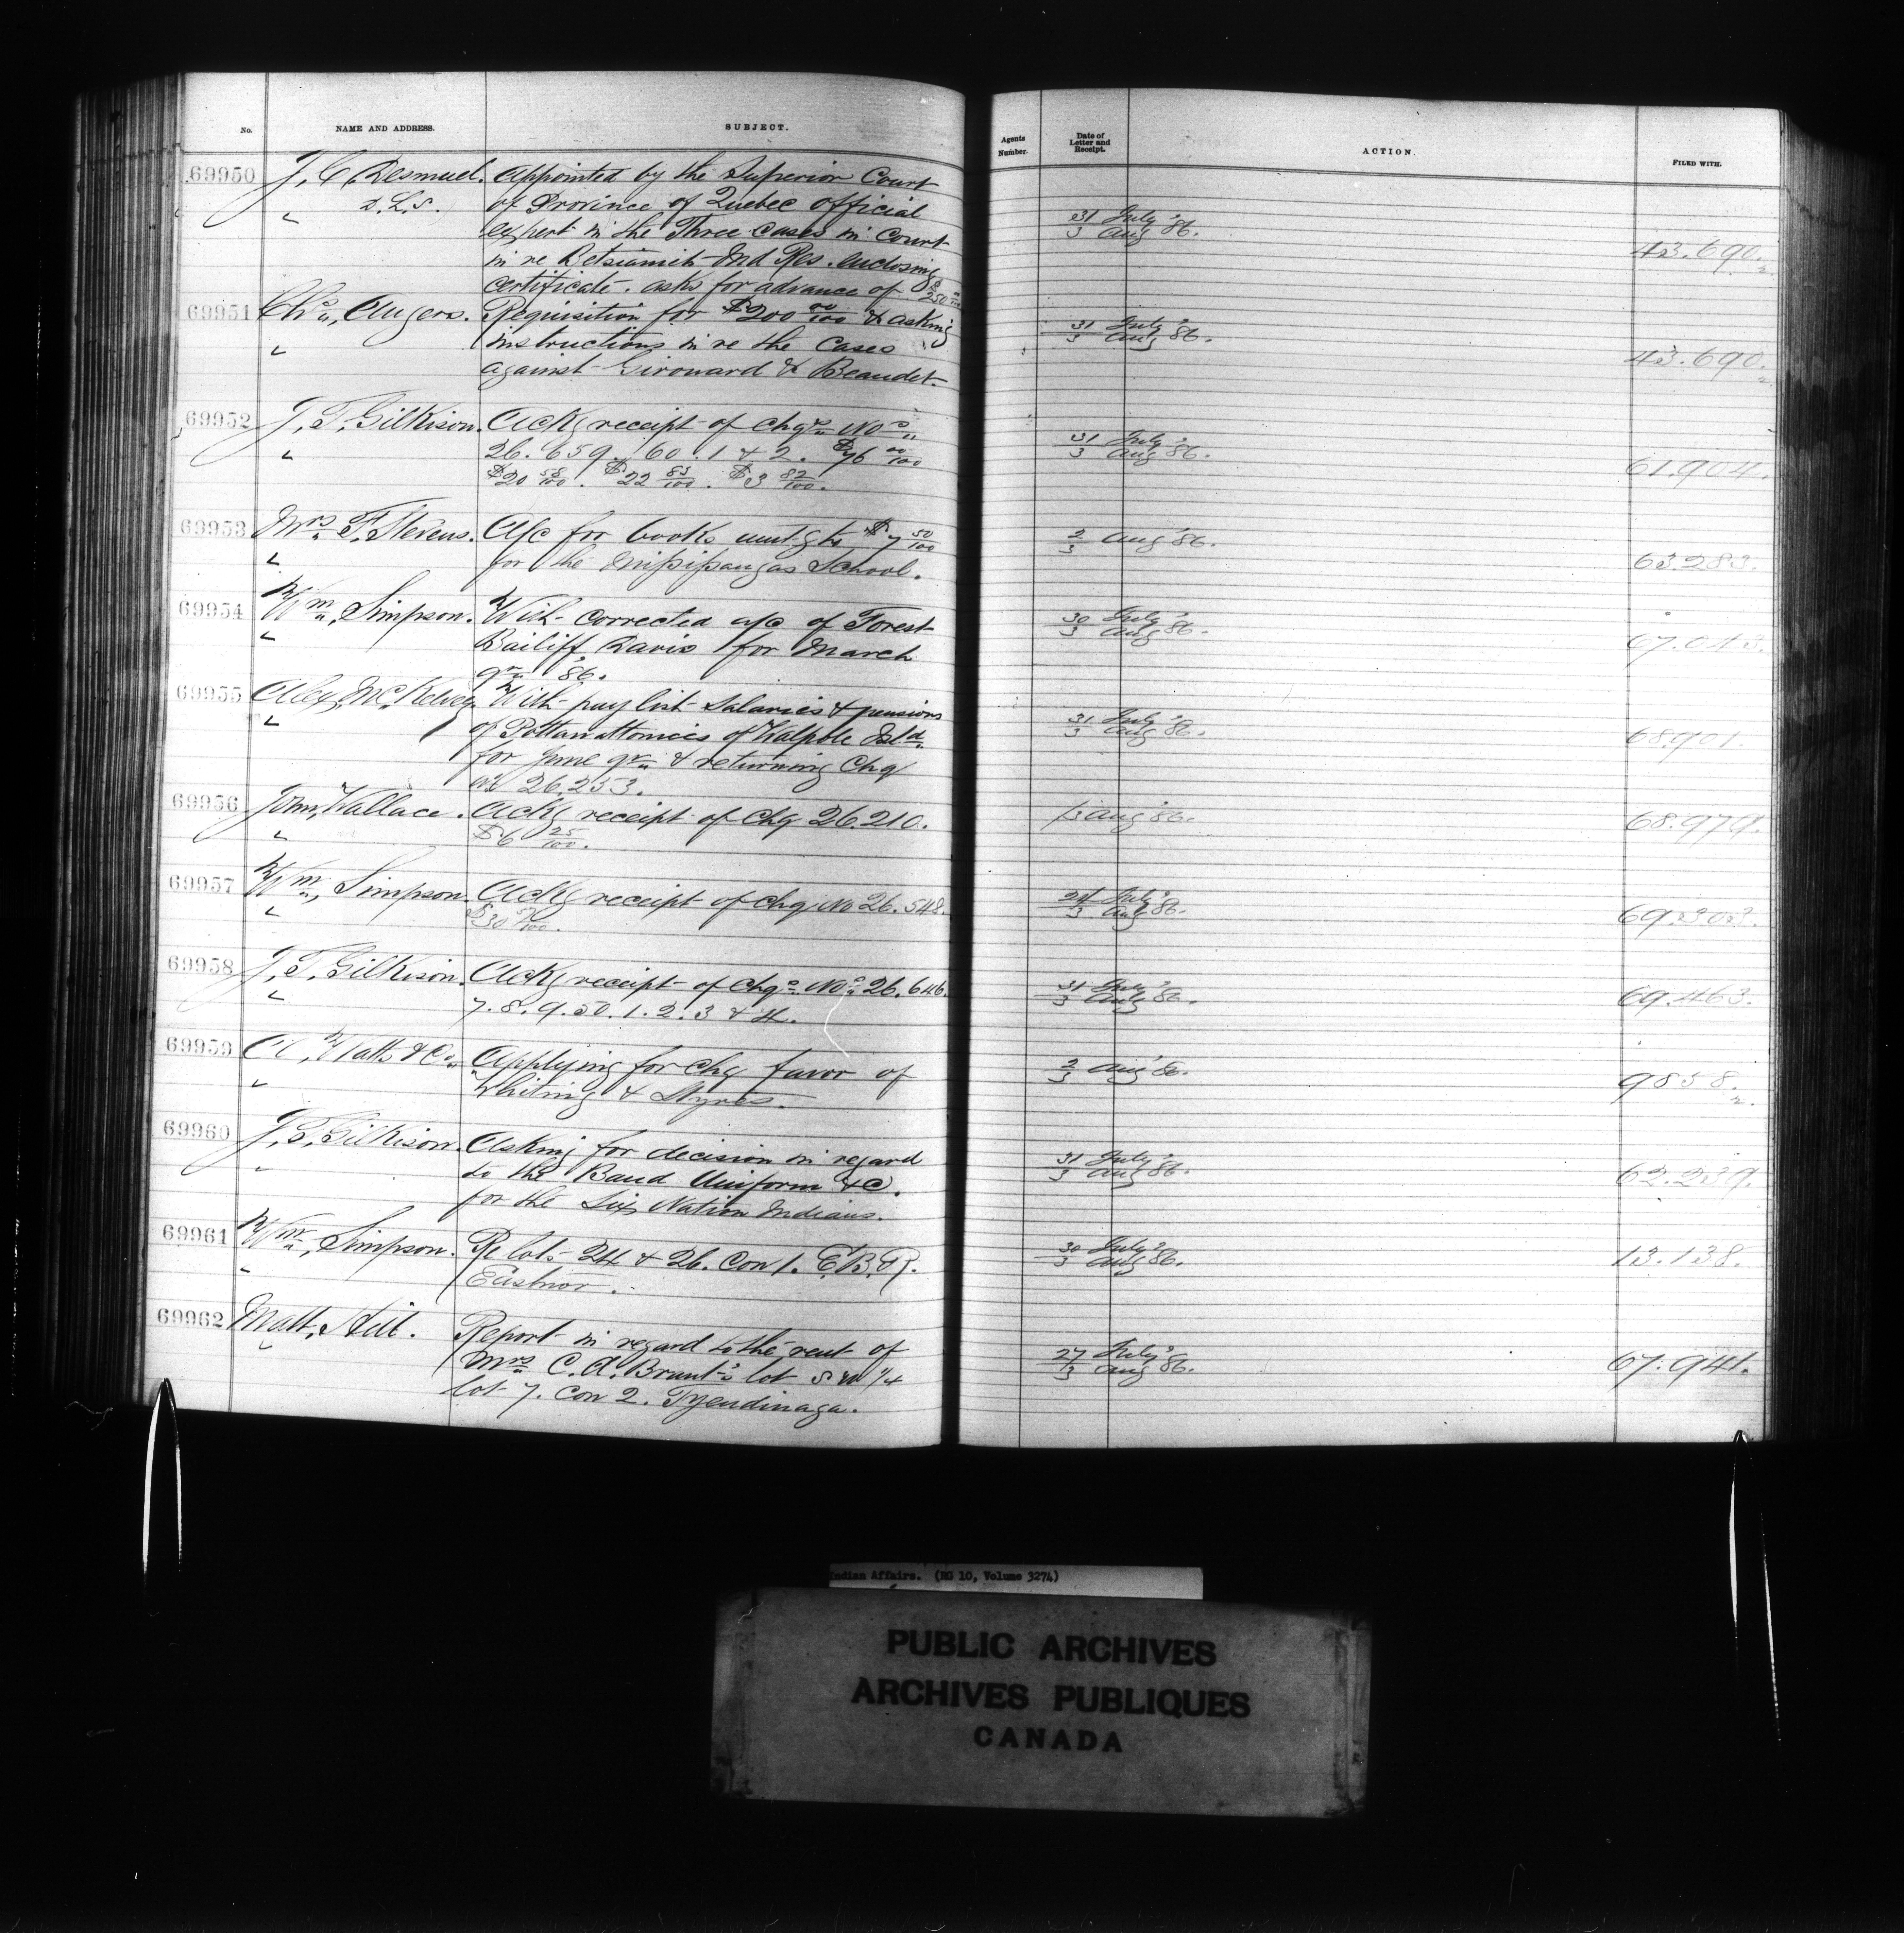 No.
NAME AND ADDRESS.
SUBJECT.
Agents Number.
Date of Letter and Receipt.
ACTION.
FILED WITH.
69950 J. C. Desmuel. Appointed by the Superior Court
D.L.S. of Province of Quebec official
expert in the Three cases in Court 31 July 3 Aug '86.
in re Betsiamits Ind Res. enclosing 43.690.2
certificate. asks for advance of $250 00/100
69951 Chs. Angers. Requisition for $200 00/100 & asking 31 July 3 Aug '86.
instructions in re the cases 43.690.2
against Girouard & Beaudet
69952 J. T. Gilkison. Ackg receipt of chqs Nos
26.659. 60. 1 & 2. $76 00/100 31 July 3 Aug '86.
$20 58/100. $22 83/100. $3 82/100. 61.904.
69953 Mrs F. Stevens. A/c for books amtg to $7 50/100 2/3 Aug '86.
for the Missisaugas School. 63.283.
69954 Wm. Simpson. With corrected a/c of Forest 30 July 3 Aug '86.
Bailiff Davis for March
qr. '86.
69955 Alex. McKelvey With pay list Salaries & pensions
of Pottawattomies of Walpole Isld. 31 July 3 Aug '86.
for June qr. & returning Chq 68.901.
no 26.253.
69956 John Wallace. Ackg receipt of Chq 26.210. 3 Aug '86.
$6 25/100. 68.979.
69957 Wm. Simpson. Ackg receipt of Chq No 26.548. July 3 Aug '86.
69.303.
69958 J. T. Gilkison. Ackg receipt of Chqs. Nos 26.646. 31 July 3 Aug '86.
7. 8. 9. 50. 1. 2. 3 & 4. 69.463.
69959 A. Watts & Co. Applying for Chq favor of 2/3 Aug '86.
Whiting & Styres. 9858.2.
69960 J. T. Gilkison. Asking for decision in regard
to the Band Uniform &c. 31 July 3 Aug '86.
for the Six Nation Indians. 62.239.
69961 Wm. Simpson. Re lots 24 & 26. Con 1. E.B.R. 30 July 3 Aug '86.
Eastnor. 13.138.
69962 Matt. Hill. Report in regard to the rent of
Mrs C. A. Brant's lot S W 1/4 27 July 3 Aug '86.
lot 7. Con 2. Tyendinaga. 67.941.
Indian Affairs. (RG 10, Volume 3274)
PUBLIC ARCHIVES
ARCHIVES PUBLIQUES
CANADA